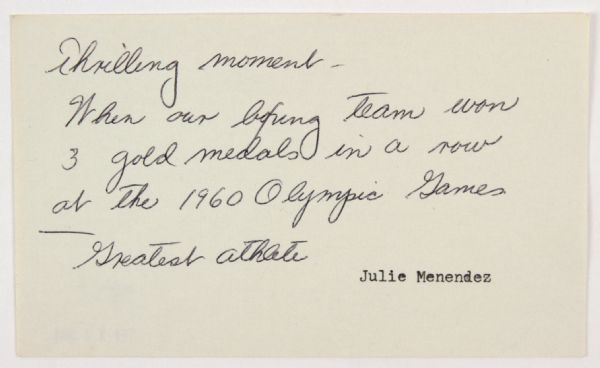 Thrilling moment -
When our boxing team won
3 gold medals in a row
at the 1960 Olympic Games
Greatest athlete
Julie Menendez